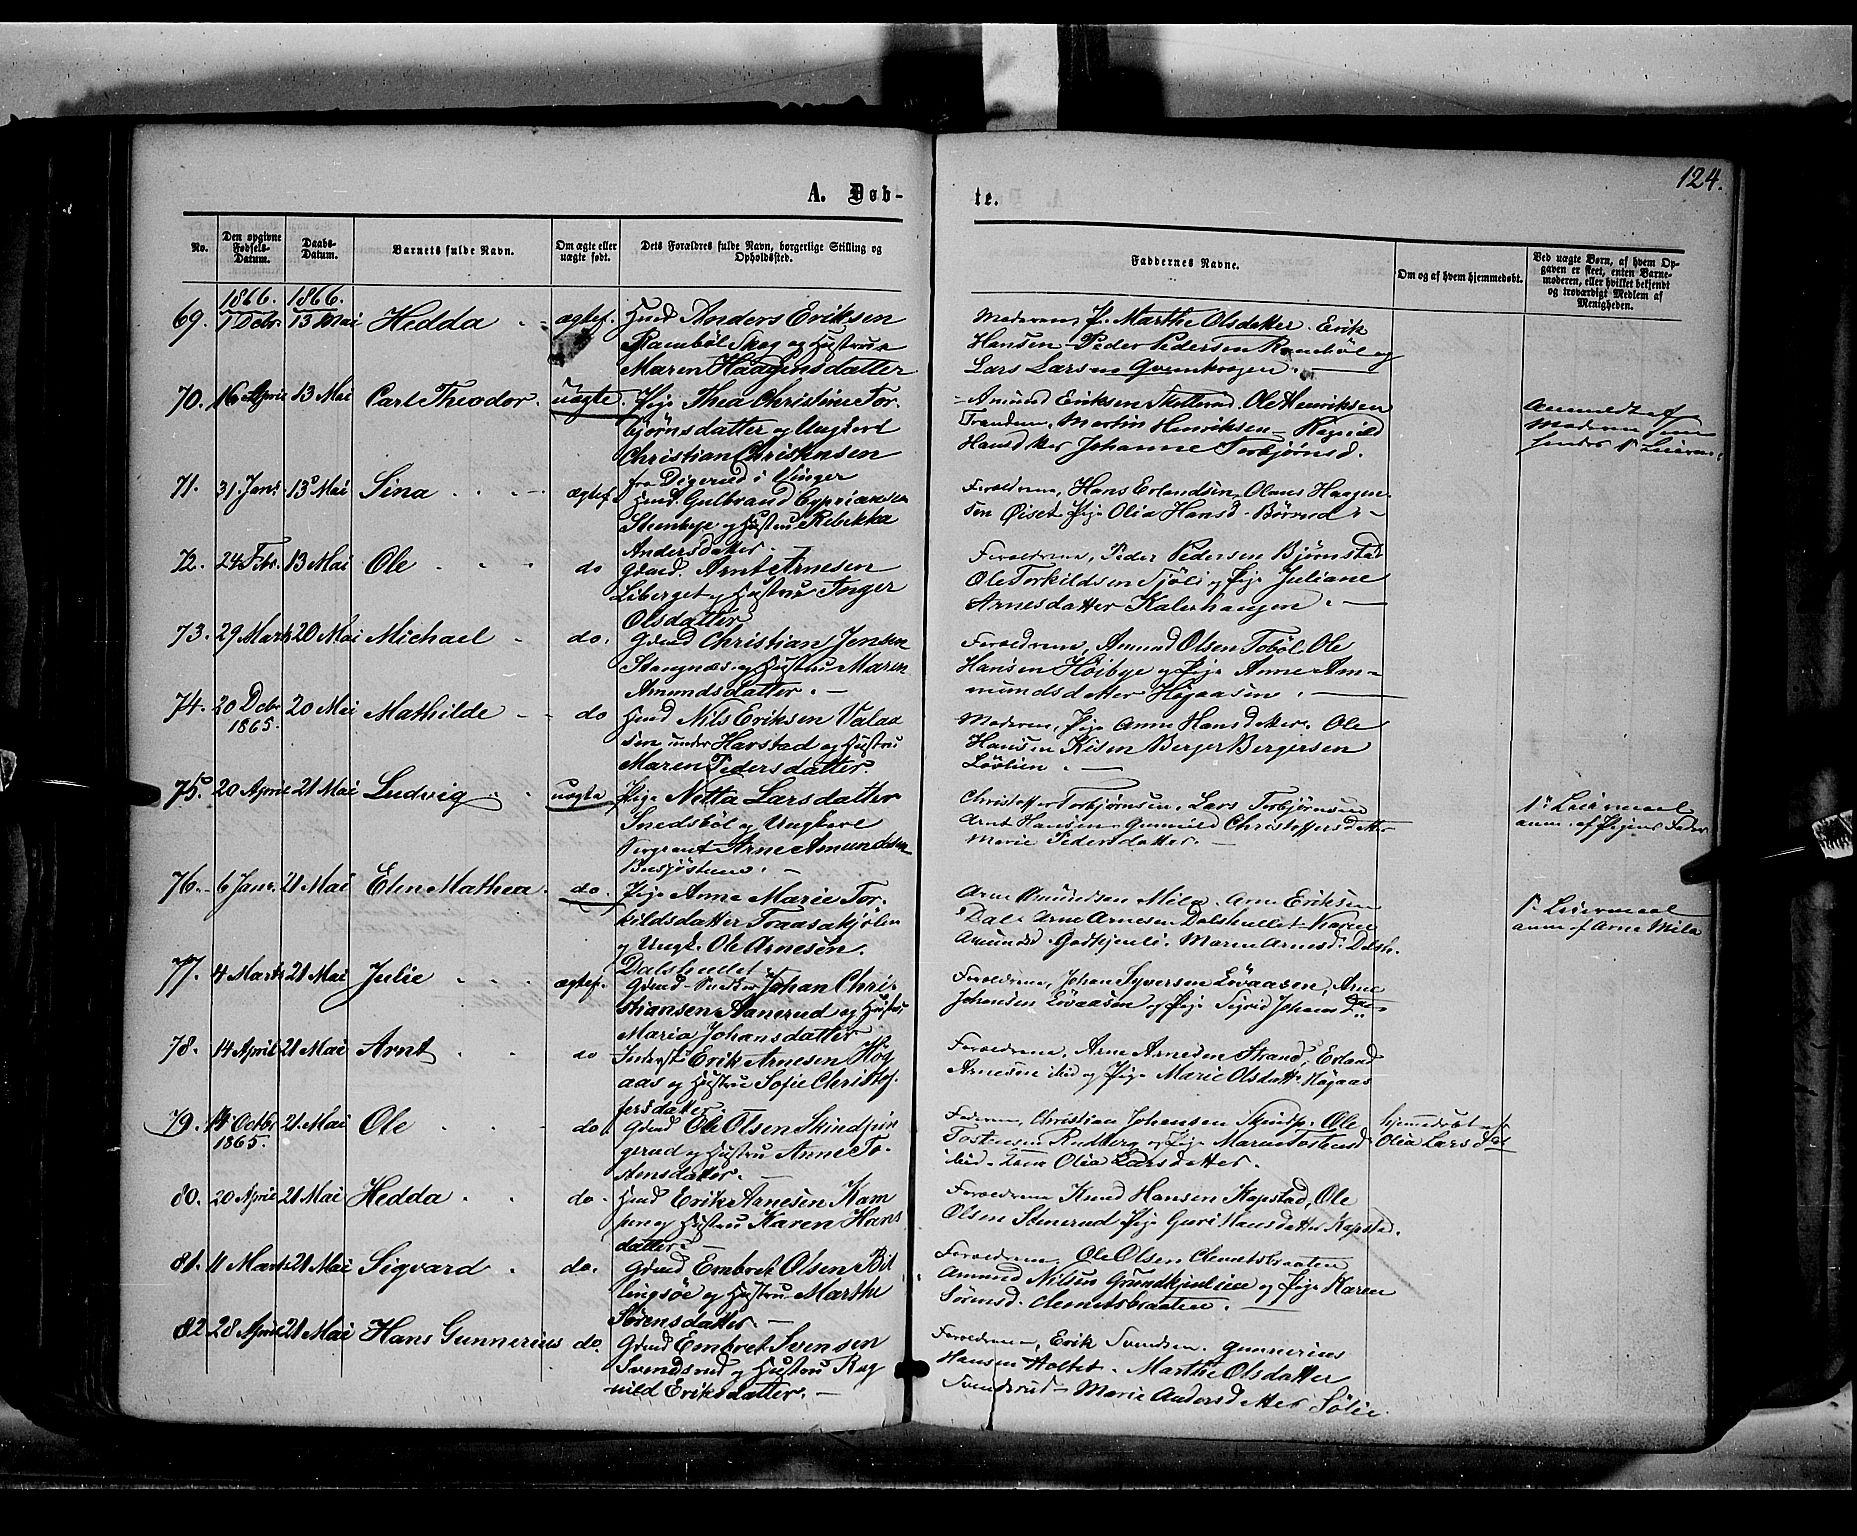 124.
A. Døb-
te.
No.
Den opgivne Fødsels-Datum.
Daabs-Datum.
Barnets fulde Navn.
Om ægte eller uægte født.
Dets Forældres fulde Navn, borgerlige Stilling og Opholdssted.
Faddernes Navne.
Om og af hvem hjemmedøbt.
Ved uægte Børn, af hvem Opgaven er skeet, enten Barnemoderen, eller hvilket bekjendt og troværdigt Medlem af Menigheden.
1866. 1866.
69. 7 Dcbr. 13 Mai Hedda ægtef. Huusd Anders Eriksen
Rambøl Skog og Hustru
Maren Haagensdatter
Moderen, P. Marthe Olsdatter. Erik
Hansen Peder Pedersen Rambøl og
Lars Larsen
70. 16 April 13 Mai Carl Theodor. uægte. Pige Thea Christine Tor-
bjørnsdatter og Ungkarl
Christian Christensen
fra Digerud i Vinger
Amund Eriksen Ole Henriksen
Martin Henriksen Ragnild
Hansdtter Johanne Torbjørnsd.
Anmeldt af
Moderen som
71. 31 Jan. 13 Mai Sina ægtef. Huusd Gulbrand Cypriansen
Stenbye og Hustru Rebekka
Andersdatter.
Forældrene, Hans Erlandsen, Olaus Haagen-
sen Øiset Pige Olia Hansd.
72. 24 Febr. 13 Mai Ole do Gaard. Arnt Arnesen
Liberget og Hustru Inger
Olsdatter
Forældrene, Peder Pedersen Bjørnstad
Ole Torkildsen og Pige Juliane
Arnesdatter Kalerhaugen.
73. 29 Marts 20 Mai Michael do. Gmd Christian Jensen
Stangnæs og Hustru Maren
Amundsdatter.
Forældrene, Amund Olsen Tobøl, Ole
Hansen Høibye og Pige Anne Am-
mundsdatter Høgaasen.
74. 20 Dcbr 20 Mai Mathilde do Huusd Nils Eriksen Valaa
1865.
sen under Harstad og Hustru
Maren Pedersdatter.
Moderen, Pige Anne Hansdatter. Ole
Hansen Kisen Berger Bergersen
Løvlien.
75. 20 April 21 Mai Ludvig uægte Pige Netta Larsdatter
Snedsbøl og Ungkarl
Sergeant Arne Amundsen
Christoffer Torbjørnsen, Lars Torbjørnsen
Arnt Hansen Gunnild Christoffersdatter
Marie Pedersdatter.
1ste Leiermaal
anm. af Pigens Fader
76. 6 Janr. 21 Mai Elen Mathea. do. Pige Anne Marie Tor-
kildsdatter Traasakjølen
og Ungk. Ole Arnesen.
Dalshullet
Arne Amundsen Mila. Arne Eriksen
Dal. Arne Arnesen Dalshullet Karen
Amunds. Godkjenli. Maren Arnesd. Dalsh.
1. Leiermaal
anm. af Arne Mila
77. 4 Marts 21 Mai Julie ægtef. Gmd Johan Chri-
stiansen Aanerud og Hustru
Maria Johansdatter
Forældrene, Johan Syversen Løvaasen, Arne
Johansen Løvaasen og Pige Sigrid Johans
78. 14 April 21 Mai Arnt do Inderst Erik Arnesen Høg
aas og Hustru Sofie Christof-
fersdatter.
Forældrene, Arne Arnesen Strand, Erland
Arnesen ibid og Pige Marie Olsdatt. Høgaas
79. 14 Octbr 21 Mai Ole do Gmd Ole Olsen Skindpin
1865.
gerud og Hustru Anne To-
stensdatter.
Faderen, Christian Johansen Skindp. Ole
Tostensen Rudberg og Pige Maren Tostensd
ibid. Kone Olia Larsdatter.
hjemmedøbt af
Olia Larsdat
80. 20 April 21 Mai Hedda do. Huusd Erik Arnesen Kam
pen og Hustru Karen Hans
datter.
Forældrene Knud Hansen Kapstad, Ole
Olsen Stenerud Pige Guri Hansdatter Kapstad.
81. 11 Marts 21 Mai Sigvard do. Gmd Embret Olsen Bil
lingsøe og Hustru Marthe
Sørensdatter.
Forældrene, Ole Olsen Clemetsbraaten
Amund Nilsen Grundkjenliee og Pige Karen
Sørensd. Clemetsbraaten.
82 28 April 21 Mai Hans Gunnerius do. Gmd Embret Svensen
Svendsrud og Hustru Rag
nild Eriksdatter.
Forældrene, Erik Svendsen. Gunnerius
Hansen Holtet. Marthe Olsdatter
Svendsrud Marie Andersdatter Sølie.